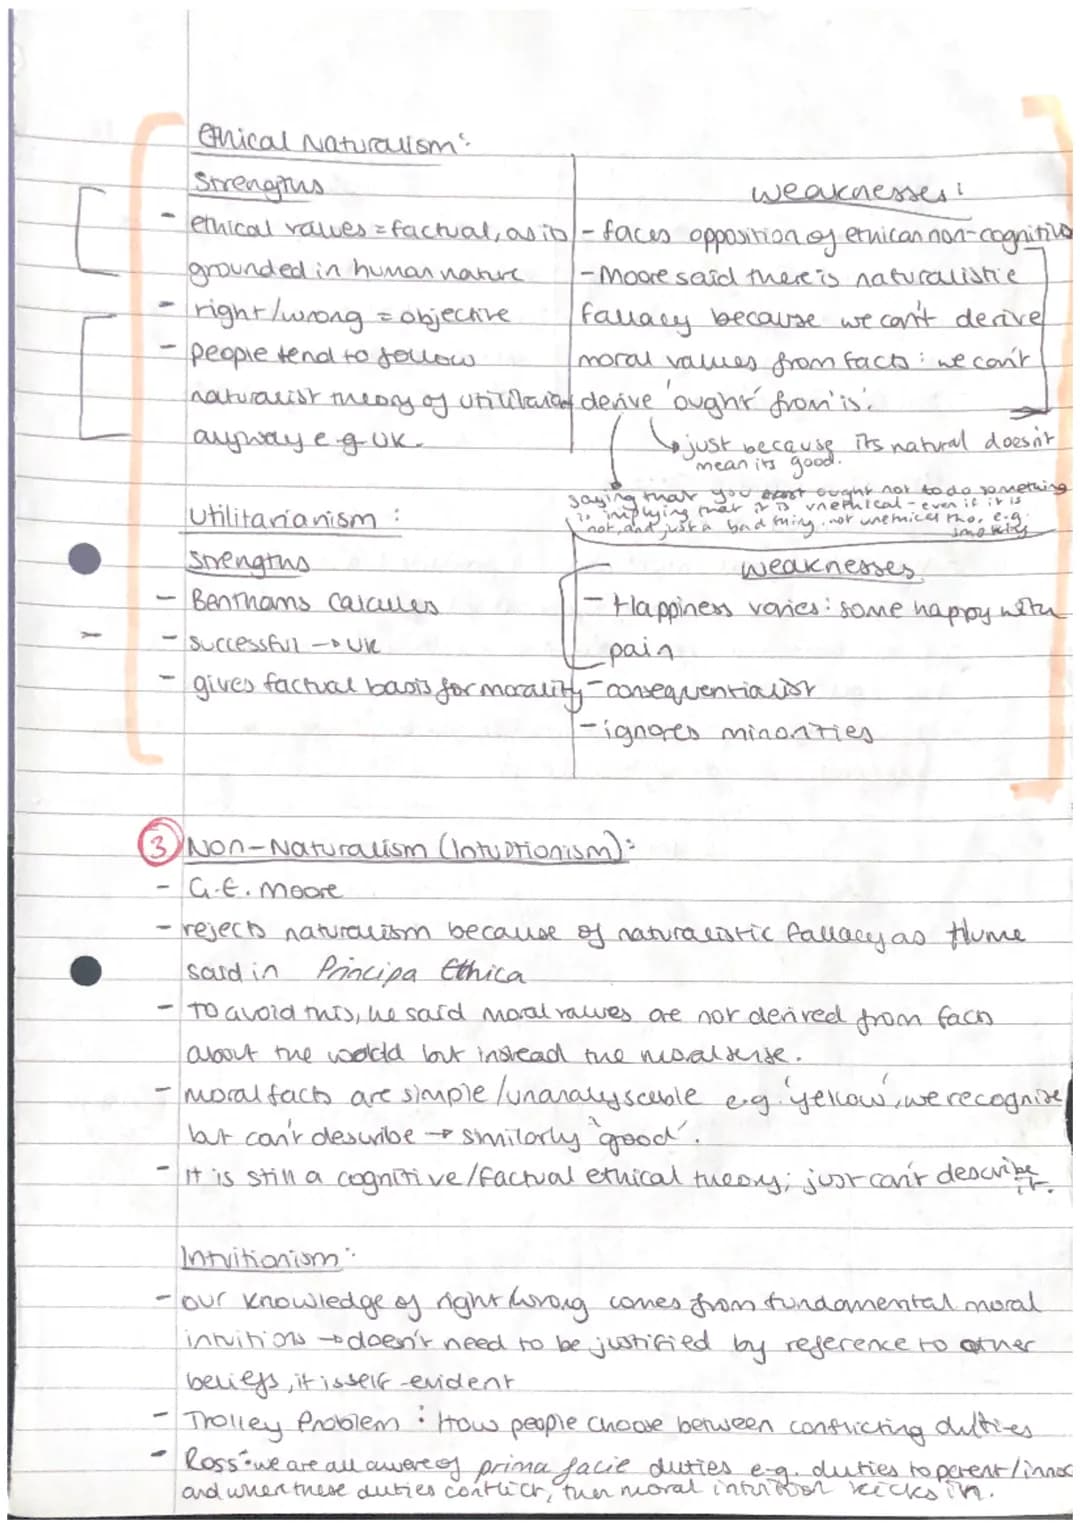 Ethical Naturalism:
Strengths
- ethical values = factual, as is
grounded in human nature
- right/wrong = objective
- people tend to follow
naturalist theory of utilitarian
anyway e.g UK.
weaknesses:
- faces opposition of ethical non-cognitivis
- Moore said there is naturalistic
fallacy because we can't derive
moral values from facts: we can't
derive 'ought' from 'is'.
↳ just because its natural doesn't
mean its good.
saying that you ought not to do something
is implying that it is unethical - even if it is
not, and just a bad thing, not unethical tho, e.g.
smoking
Utilitarianism:
Strengths
- Benthams Calcules
- successful → UK
- gives factual basis for morality
weaknesses
- Happiness varies: some happy with
pain
- consequentialist
- ignores minorities
3 Non-Naturalism (Intuitionism):
- G.E. Moore
- rejects naturalism because of naturalistic fallacy as Hume
said in Principa Ethica
- To avoid this, he said moral values are not derived from facts
about the world but instead the moral sense.
- moral facts are simple/unanalysable e.g. 'yellow', we recognise
but can't describe → similarly 'good'.
- It is still a cognitive/factual ethical theory; just can't describe
it.
Intuitionism:
- our knowledge of right/wrong comes from fundamental moral
intuitions → doesn't need to be justified by reference to other
beliefs, it is self-evident
- Trolley Problem: How people choose between conflicting duties
- Ross: we are all aware of prima facie duties e.g. duties to perent/innoc
and when these duties conflict, then moral intuition kicks in.